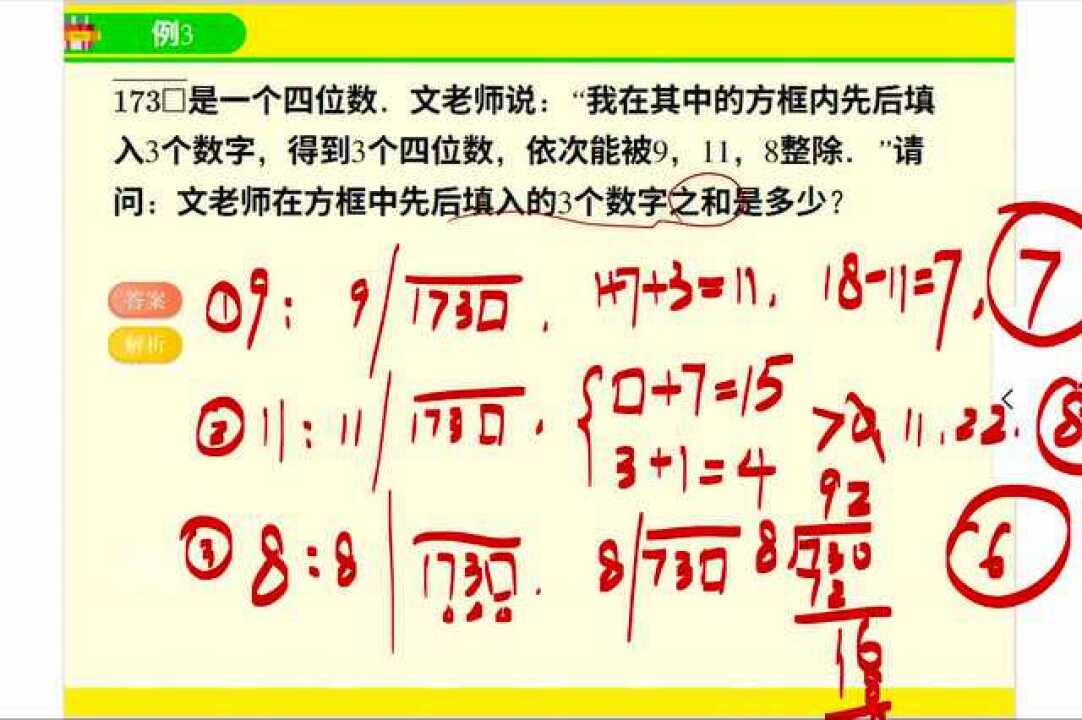 例3
173□是一个四位数.文老师说:“我在其中的方框内先后填
入3个数字,得到3个四位数,依次能被9,11,8整除.”请
问:文老师在方框中先后填入的3个数字之和是多少?
答案
解析
①9: 9/173□. 1+7+3=11, 18-11=7, 7
②11: 11/173□. □+7=15
3+1=4
>0, 11, 22. 8
③8:8 173□. 8/73□
92
8 730
72
16
6